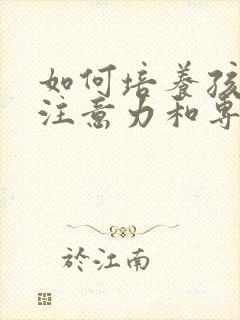 如何培养孩
注意力和专
於江南